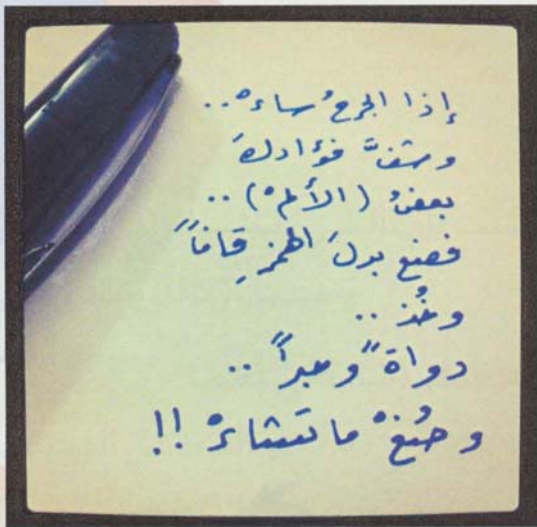 إذا الجرحُ ساءْ..
وشفَّ فؤادكَ
بعضُ (الألمْ)..
فضع بدلَ الهمزِ قافاً
وخُذ..
دواةً وحبراً..
وصُغْ ما تشاءْ!!